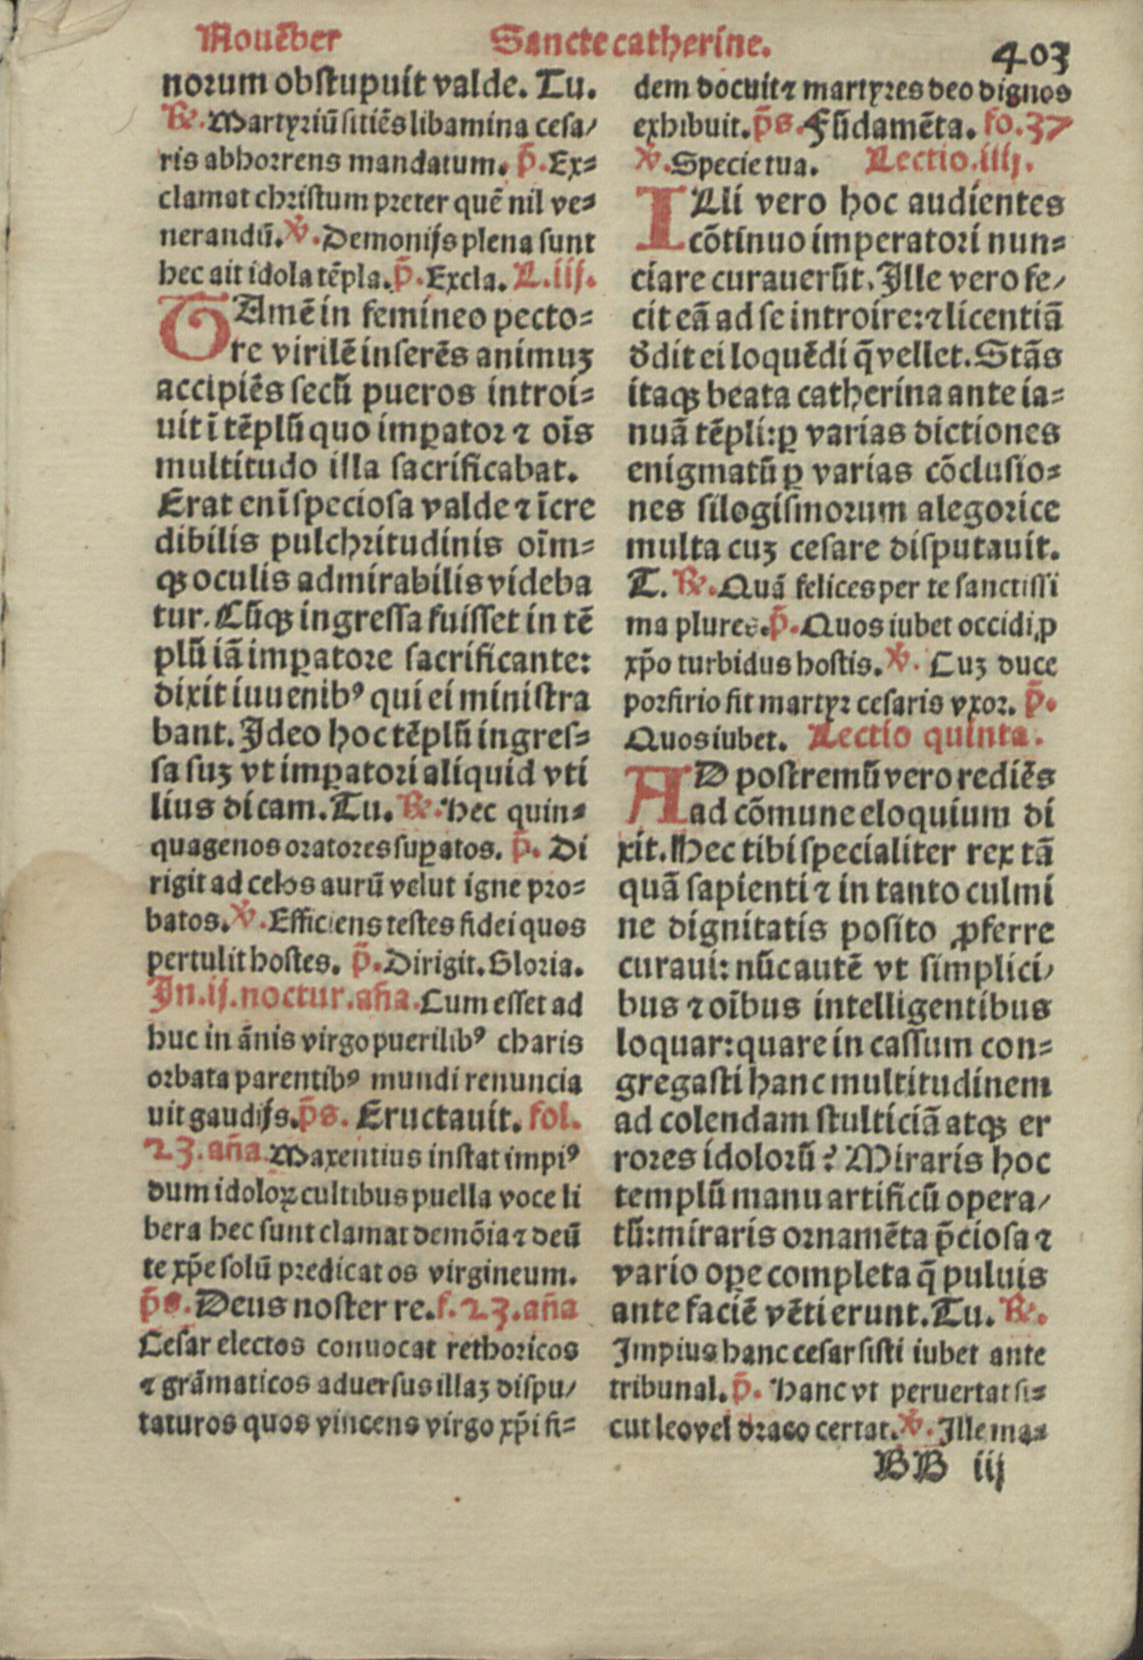 Nouẽber Sancte catherine. 403
norum obstupuit valde. Tu.
℟. Martyriũ sitiẽs libamina cesa/
ris abhorrens mandatum. p̃. Ex-
clamat christum preter quẽ nil ve-
nerandũ. ℣. Demonijs plena sunt
hec ait idola tẽpla. p̃. Excla. L.iij.
TAmẽ in femineo pecto-
re virilẽ inserẽs animuʒ
accipiẽs secũ pueros introi-
uit ĩ tẽplũ quo imꝑator ⁊ oĩs
multitudo illa sacrificabat.
Erat enĩ speciosa valde ⁊ ĩcre
dibilis pulchritudinis oĩm-
qꝫ oculis admirabilis videba
tur. Cũqꝫ ingressa fuisset in tẽ
plũ iã imꝑatore sacrificante:
dixit iuuenibꝰ qui ei ministra
bant. Ideo hoc tẽplũ ingres-
sa suʒ vt imꝑatori aliquid vti
lius dicam. Tu. ℟. Hec quin-
quagenos oratores suꝑatos. p̃. Di
rigit ad celos aurũ velut igne pro-
batos. ℣. Efficiens testes fidei quos
pertulit hostes. p̃. Dirigit. Gloria.
In.ij.noctur.añа. Cum esset ad
huc in ãnis virgo puerilibꝰ charis
orbata parentibꝰ mundi renuncia
uit gaudijs. p̃s. Eructauit. fol.
23. aña. Maxentius instat impiꝰ
dum idoloꝝ cultibus puella voce li
bera hec sunt clamat demõia ⁊ deũ
te xp̃e solũ predicat os virgineum.
p̃s. Deus noster re. f. 23. aña
Cesar electos conuocat rethoricos
⁊ grãmaticos aduersus illaʒ dispu/
taturos quos vincens virgo xp̃i fi-
dem docuit ⁊ martyres deo dignos
exhibuit. p̃s. Fũdamẽta. fo. 37
℣. Specie tua. Lectio.iiij.
ILli vero hoc audientes
cõtinuo imperatori nun-
ciare curauerũt. Ille vero fe/
cit eã ad se introire: ⁊ licentiã
ddit ei loquẽdi q̃ vellet. Stãs
itaqꝫ beata catherina ante ia-
nuã tẽpli: ꝑ varias dictiones
enigmatũ ꝑ varias cõclusio-
nes silogismorum alegorice
multa cuʒ cesare disputauit.
T. ℟. Quã felices per te sanctissi
ma plures. p̃. Quos iubet occidi ꝓ
xp̃o turbidus hostis. ℣. Cuʒ duce
porfirio fit martyr cesaris vxor. p̃.
Quos iubet. Lectio quinta.
AD postremũ vero rediẽs
ad cõmune eloquium di
xit. Hec tibi specialiter rex tã
quã sapienti ⁊ in tanto culmi
ne dignitatis posito ꝓferre
curaui: nũc autẽ vt simplici/
bus ⁊ oĩbus intelligentibus
loquar: quare in cassum con-
gregasti hanc multitudinem
ad colendam stulticiã atqꝫ er
rores idolorũ? Miraris hoc
templũ manu artificũ opera/
tũ: miraris ornamẽta p̃ciosa ⁊
vario oꝑe completa q̃ puluis
ante faciẽ vẽti erunt. Tu. ℟.
Impius hanc cesar sisti iubet ante
tribunal. p̃. Hanc vt peruertat si-
cut leo vel draco certat. ℣. Ille ma-
BB iij